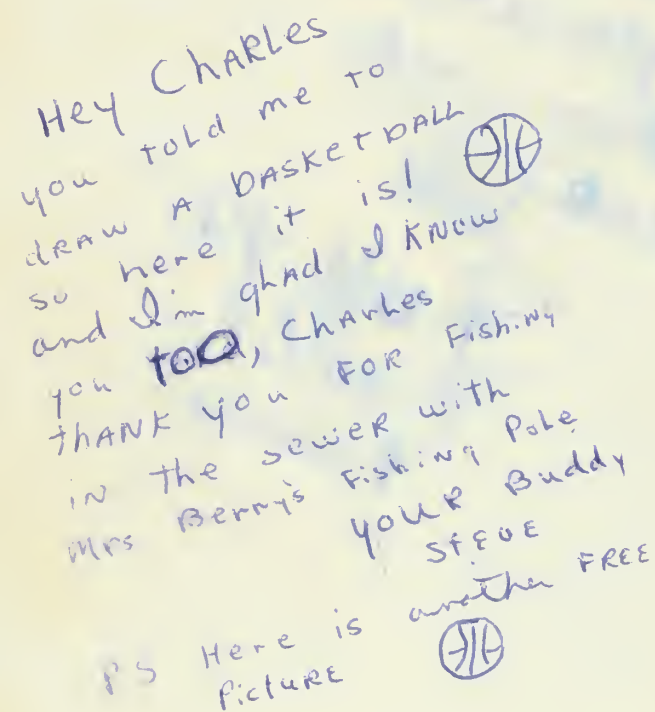 Hey Charles
you told me to
draw a basketball
so here it is!
and I'm glad I know
you too, Charles
thank you for fishing
in the sewer with
Mrs Berry's Fishing Pole
your Buddy
Steve
PS Here is another FREE
Picture